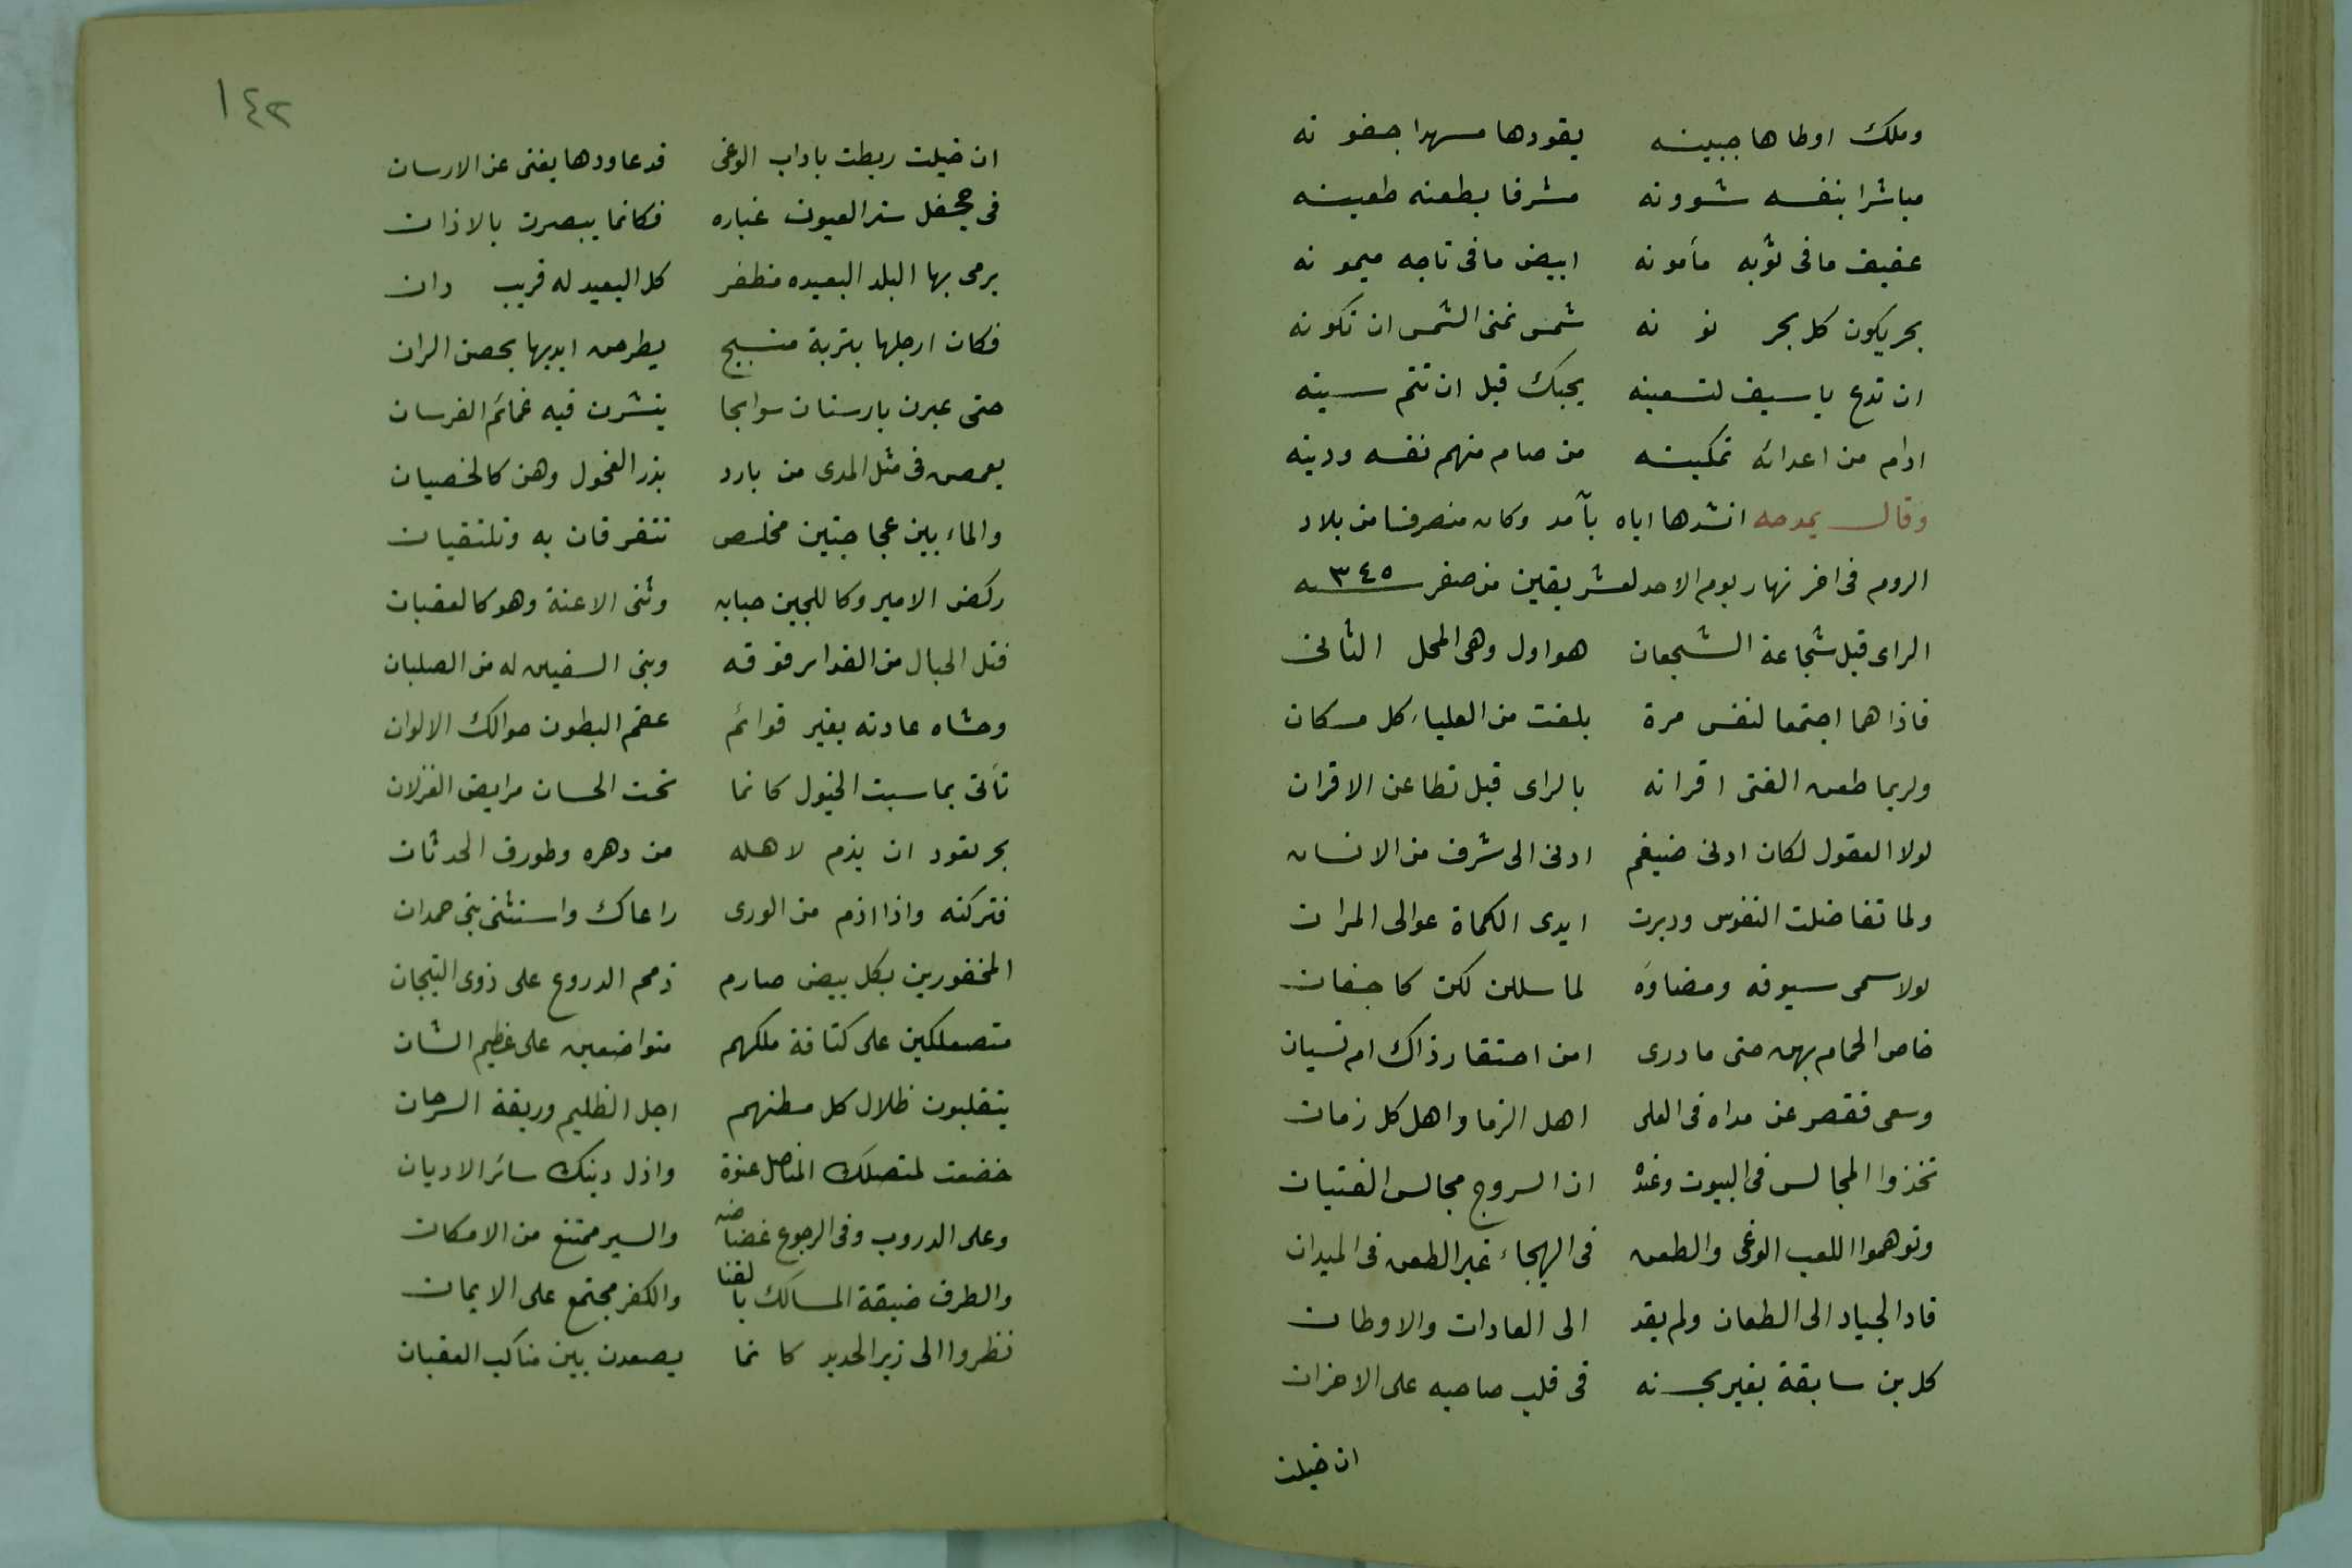 وملك اوطاها جبينه يقودها مسهدا جفونه
مباشرا بنفسه شوونه مشرفا بطعنه طعينه
عفيف ما فى ثوبه مأمونه ابيض ما فى تاجه ميمونه
بحر يكون كل بحر نونه شمس تمنى الشمس ان تكونه
ان تدع يا سيف لتستعينه يجبك قبل ان تتم سينه
ادام من اعدائه تمكينه من صام منهم نفسه ودينه
وقال يمدحه انشدها اياه بآمد وكان منصرفا من بلاد
الروم فى اخر نهار يوم الاحد لعشر بقين من صفر سنه ٣٤٥
الراى قبل شجاعة الشجعان هو اول وهى المحل الثانى
فاذا هما اجتمعا لنفس مرة بلغت من العلياء كل مكان
ولربما طعن الفتى اقرانه بالراى قبل تطاعن الاقران
لولا العقول لكان ادنى ضيغم ادنى الى شرف من الانسان
ولما تفاضلت النفوس ودبرت ايدى الكماة عوالى المران
لولا سمى سيوفه ومضاؤه لما سللن لكن كاجفان
خاض الحمام بهن حتى ما درى امن احتقار ذاك ام نسيان
وسعى فقصر عن مداه فى العلى اهل الزما واهل كل زمان
تخذوا المجالس فى البيوت وعنده ان السروج مجالس الفتيان
وتوهموا اللعب الوغى والطعن فى الهيجاء غير الطعن فى الميدان
قاد الجياد الى الطعان ولم يقد الى العادات والاوطان
كل بن سابقة بغير بحسنه فى قلب صاحبه على الاحزان
ان خيلت
١٤٢
ان خيلت ربطت باداب الوغى قدعاودها يغنى عن الارسان
فى جحفل ستر العيون غباره فكانما يبصرن بالاذان
يرمى بها البلد البعيده مظفر كل البعيد له قريب دان
فكان ارجلها بتربة منبج يطرحن ايديها بحصن الران
حتى عبرن بارسنان سوابحا ينشرن فيه عمائم الفرسان
يقمصن فى مثل المدى من بارد يذر الفحول وهن كالخصيان
والماء بين عجاجتين مخلص تتفرقان به وتلتقيان
ركض الامير وكاللجين حبابه وثنى الاعنة وهو كالعقبان
فتل الحبال من الغداير فوقه وبنى السفين له من الصلبان
وحشاه عادته بغير قوائم عقم البطون حوالك الالوان
تأتى بما سبت الخيول كانما تحت الحسان مرابض الغزلان
بحر تعود ان يذم لاهله من دهره وطورف الحدثان
فتركته واذا اذم من الورى راعاك واستثنى بنى حمدان
المخفورين بكل بيض صارم ذمم الدروع على ذوى التيجان
متصعلكين على كثافة ملكهم متواضعين على عظيم الشان
يتقلبون ظلال كل مطنهم اجل الظليم وربقة السرحان
خضعت لمنصلك المناصل عنوة واذل دينك سائر الاديان
وعلى الدروب وفى الرجوع غضاضه والسير ممتنع من الامكان
والطرف ضيقة المسالك بالقنا والكفر مجتمع على الايمان
نظروا الى زبر الحديد كانما يصعدن بين مناكب العقبان